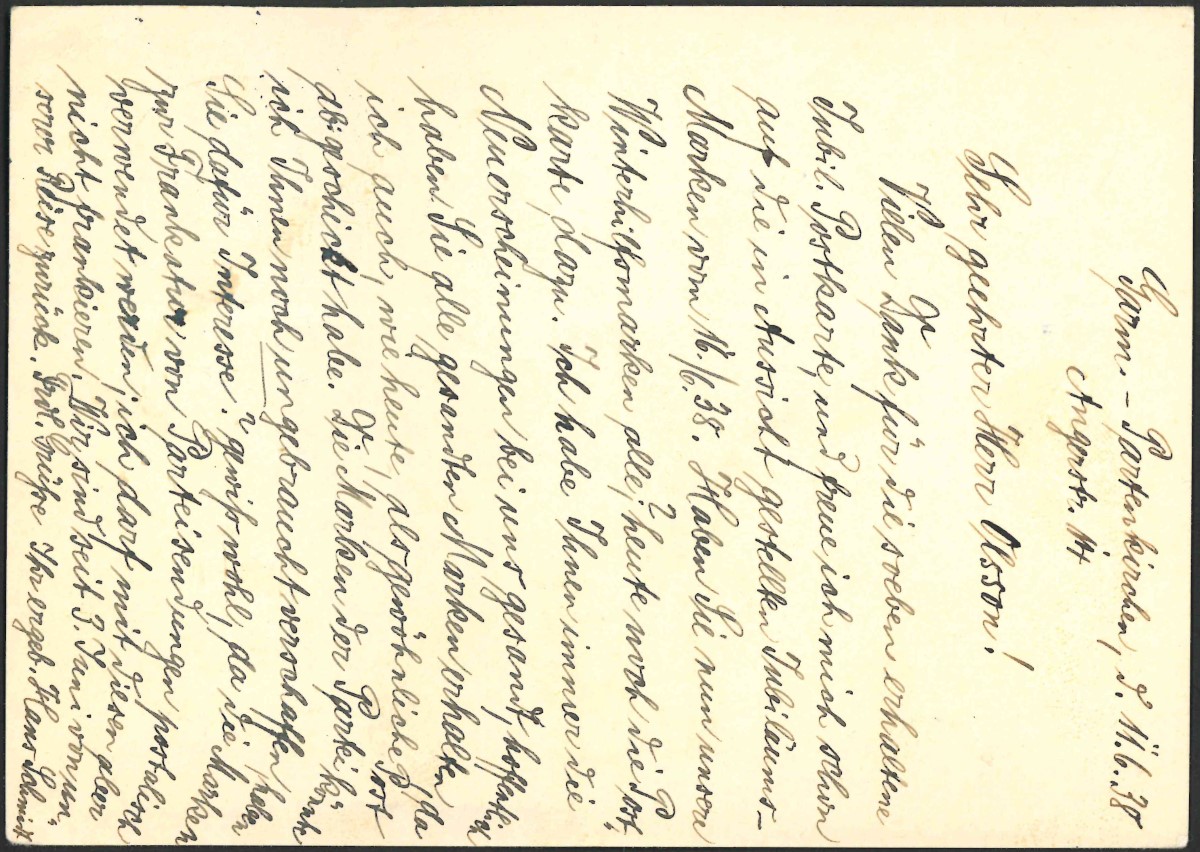 Garm.-Partenkirchen, d. 11.6.38
Angerstr. 14
Sehr geehrter Herr Olsson!
Vielen Dank für die soeben erhaltene
Jubil. Postkarte, und freue ich mich schon
auf die in Aussicht gestellten Jubiläums-
Marken vom 16./6.38. Haben Sie nun unsere
Winterhilfsmarken alle, heute noch die Post-
karte dazu. Ich habe Ihnen immer die
Neuerscheinungen bei uns gesandt, hoffentlich
haben Sie alle gesandten Marken erhalten, da
ich auch, wie heute, als gewöhnliche Post
abgeschickt habe. Die Marken der Partei könnte
ich Ihnen noch ungebraucht verschaffen, haben
Sie dafür Interesse? gewiß wohl, da die Marken
zur Frankatur von Parteisendungen postalisch
verwendet werden, ich darf mit diesen aber
nicht frankieren. Wir sind seit 3. Juni von un-
serer Reise zurück. Frdl. Grüße Ihr ergeb. Hans Schmidt